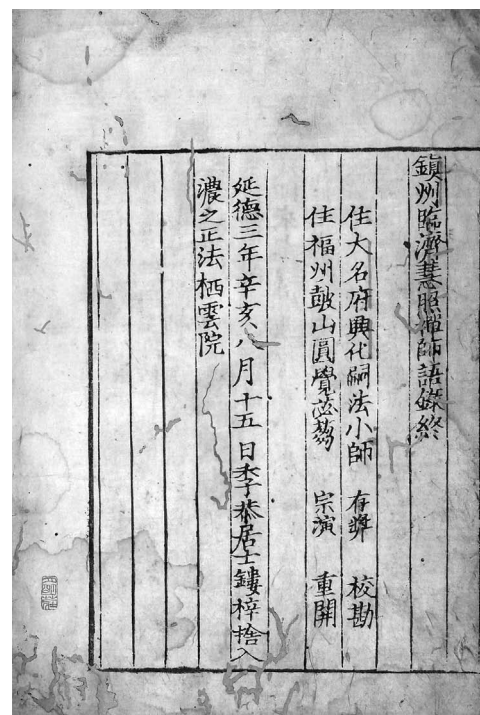 鎮州臨濟慧照禪師語錄終
住大名府興化嗣法小師 存奬 校勘
住福州鼓山圓覺苾芻 宗演 重開
延德三年辛亥八月十五日季恭居士鏤梓捨入
濃之正法栖雲院